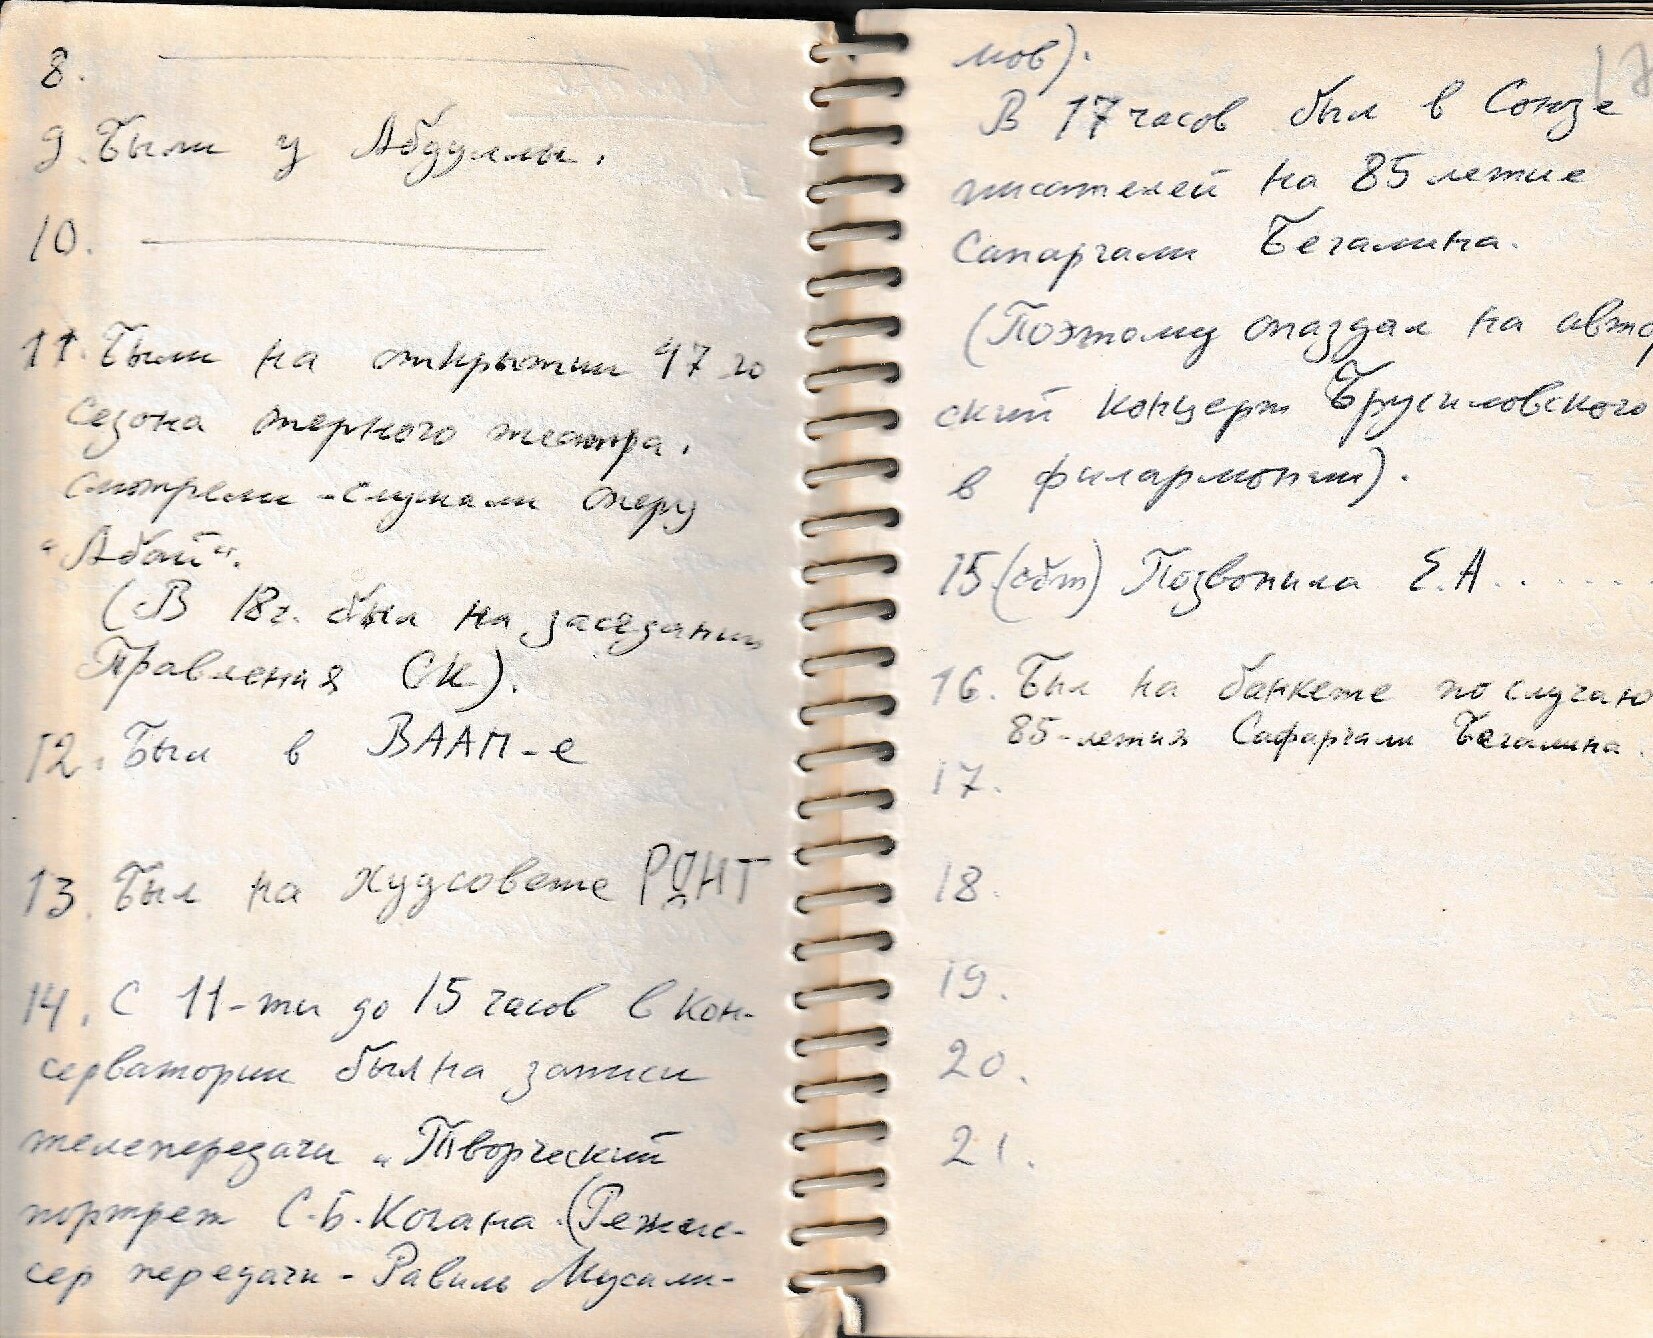 8.
9. Были у Абдуллы.
10.
11. Были на открытии 47 го
сезона оперного театра.
смотрели - слушали оперу
"Абай".
(В 18ч. был на заседании
Правления СК).
12. Был в ВААП-е
13. Был на худсовете РДНТ
14. С 11-ти до 15 часов в кон-
серватории был на записи
телепередачи „Творческий
портрет С.Б. Когана. (Режис-
сер передачи - Равиль Мусали-
мов).
В 17 часов был в Союзе
писателей на 85 летие
Сапаргали Бегалина.
(Поэтому опаздал на автор
ский концерт Брусиловского
в филармонии).
15 (сбт) Позвонила Е.А. . . . . .
16. Был на банкете по случаю
85-летия Сафаргали Бегалина.
17.
18.
19.
20.
21.